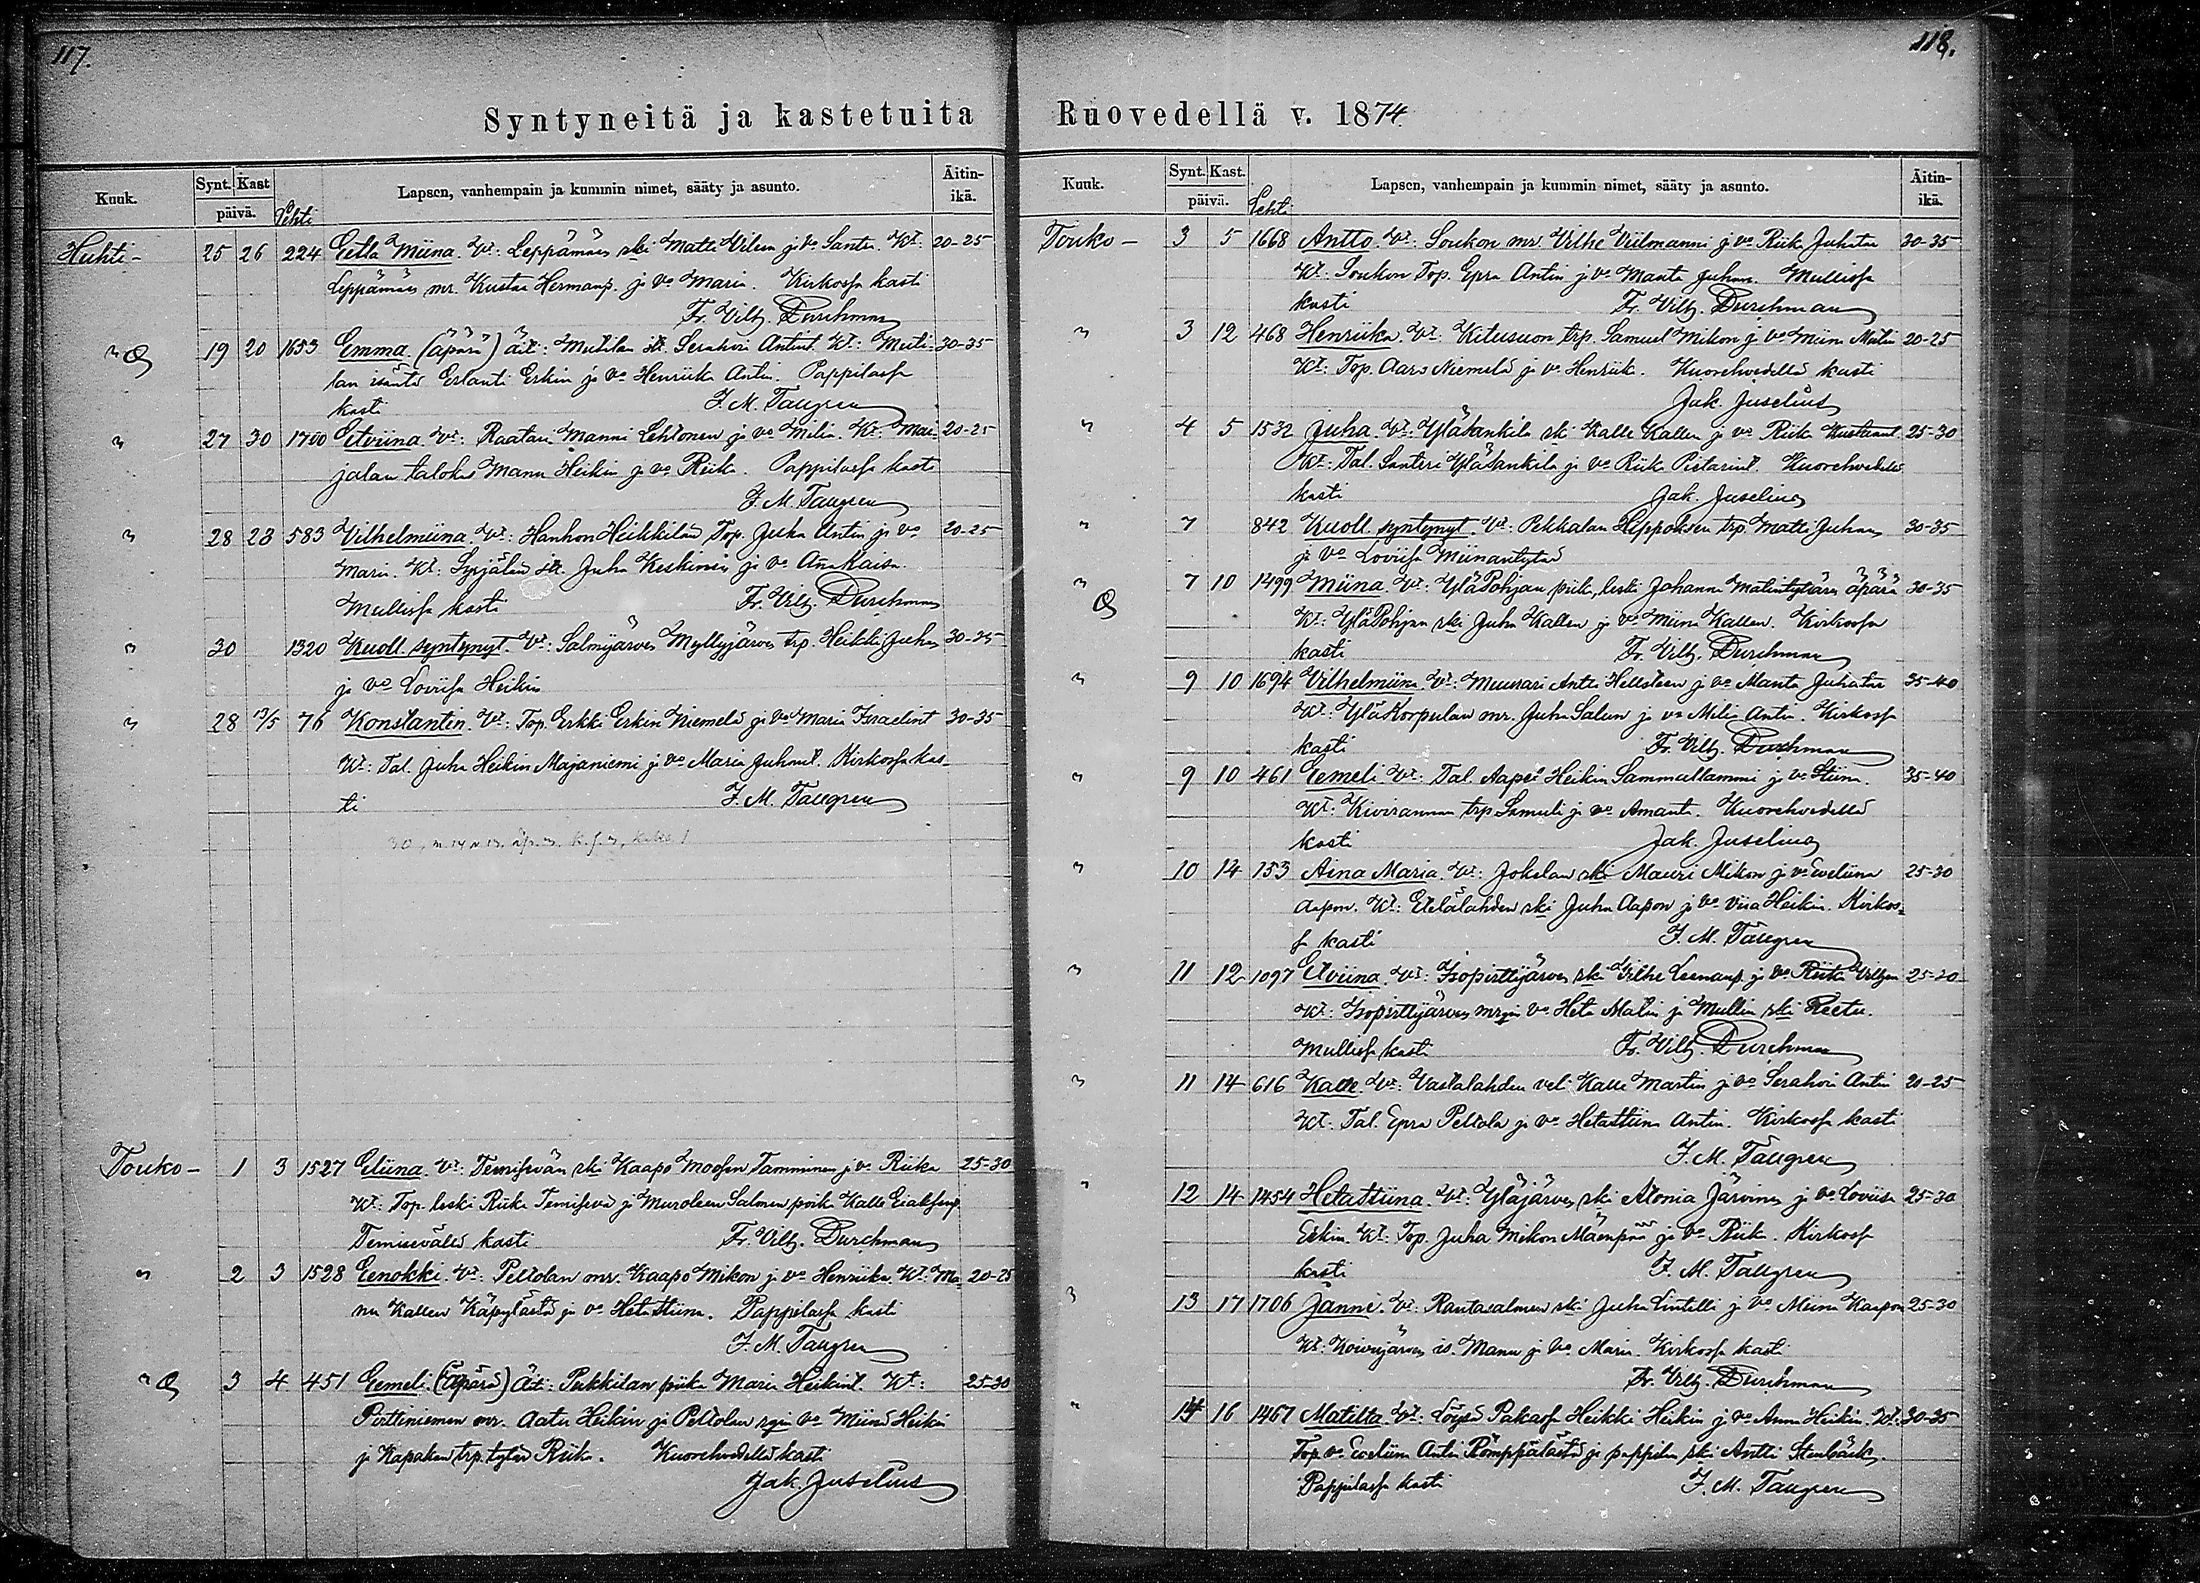 117.
Syntyneitä ja kastetuita
Kuuk. Synt. Kast päivä. Lehti Lapsen, vanhempain ja kummin nimet, sääty ja asunto. Äitin-ikä.
Huhti- 25 26 224 Eetla Miina. Vt: Leppämäen ski Matti Vilen j. vo Santr. Kt: 20-25
Leppämäen mr. Kustaa Hermanp. ja vo Maria. Kirkossa kasti
Fr. Vilh. Durchman
" 19 20 1653 Emma (äpärä) äit: Mutilan itt. Serahvia Antint. Kt: Muti- 30-35
lan isäntä Erlanti Erkin ja vo Henriika Antin. Pappilassa
kasti J. M. Tallgren
" 27 30 1700 Etviina. Vt: Raatari Manni Lehtonen ja vo Milia. Kt: Mar- 20-25
jalan talokas Manu Heikin ja vo Riika. Pappilassa kasti
J. M. Tallgren
" 28 28 583 Vilhelmiina. Vt: Hanhon Heikkilän Top. Juha Antin ja vo 20-25
Maria. Kt: Syrjälän itt. Juha Keskinen ja vo Ana Kaisa.
Mullissa kasti Fr. Vilh. Durchman
" 30 1320 Kuoll. syntynyt. Vt: Salmijärven Myllyjärven trp. Heikki Juhan 30-35
ja vo Loviisa Heikin
" 28 13/5 76 Konstantin. Vt: Top. Erkki Erkin Niemelä ja vo Maria Israelint 30-35
Kt: Tal. Juha Heikin Majaniemi ja vo Maria Juhant. Kirkossa kas-
ti J. M. Tallgren
Touko- 1 3 1527 Eliina. Vt: Temisevän ski Kaapo Moosen Tamminen j. vo Riika 25-30
Kt: Top. leski Riika Temisevä ja Muroleen Salmen poika Kalle Eeakseup.
Temisevällä kasti Fr. Vilh. Durchman
" 2 3 1528 Eenokki. Vt: Peltolan mr. Kaapo Mikon j. vo Henriika. Kt: Ma- 20-25
nu Kallen Käpylästä ja vo Heta Stiina. Pappilassa kasti
J. M. Tallgren
" 3 4 451 Eemeli. (äpärä) Äit: Pekkilan piika Maria Heikint. Kt: 25-30
Perttiniemen mr. Aatu Heikin ja Peltolan rgin vo Miina Heikin
ja Kapakan trp. tytär Riika. Kuorehvedellä kasti
Jak. Juselius
118.
Ruovedellä v. 1874
Kuuk. Synt. Kast. päivä. Lehti Lapsen, vanhempain ja kummin nimet, sääty ja asunto. Äitin-ikä.
Touko- 3 5 1668 Antto. Vt: Soukon mr. Vilhe Viilmanni j. vo Riik Juhatar 30-35
Kt: Soukon Top. Epra Antin j. vo Manta Juhan. Mullissa
kasti Fr. Vilh. Durchman
" 3 12 468 Henriika. Vt: Kitusuon trp. Samuel Mikon j. vo Miina Matin 20-25
Kt: Top. Aaro Niemelä j. v. Henriik. Kuorehvedellä kasti
Jak. Juselius
" 4 5 1532 Juha. Vt: Ylätankila ski Kalle Kallen j. vo Riika Kustaant 25-30
Kt: Tal. Santeri Ylätankila ja vo Riika Pietarint. Kuorehvedellä
kasti Jak. Juselius
" 7 842 Kuoll. syntynyt. Vt: Pekkalan Leppoksen trp. Matti Juhan 30-35
ja vo Loviisa Miinantytär
" 7 10 1499 Miina. Vt: YläPohjan piik, leski Johanna Matintytären äpärä 30-35
Kt: YläPohjan ski Juha Kallen j. vo Miina Kallen. Kirkossa
kasti Fr. Vilh. Durchman
" 9 10 1694 Vilhelmiina. Vt: Muurari Antti Hellsteen j. vo Manta Juhatar 35-40
Kt: YläKorpulan mr. Juha Salun ja vo Milia Antin. Kirkossa
kasti Fr. Vilh. Durchman
" 9 10 461 Eemeli. Vt: Tal. Aapeli Heikin Sammallammi j. vo Stiina. 35-40
Kt: Kiviranman trp. Samuli ja vo Amanta. Kuorehvedellä
kasti Jak. Juselius
" 10 14 153 Aina Maria. Vt: Jokelan ski Mauri Mikon j. vo Eveliina 25-30
Aapon. Kt: Etelälahden ski Juha Aapon j. vo Viia Heikin. Kirkos-
sa kasti J. M. Tallgren
" 11 12 1097 Elviina. Vt: Isopirttijärven ski Vilhe Leenanp. ja vo Riika Vilhen 25-30
Kt: Isopirttijärven mrgin vo Heta Matin ja Mullin ski Reetu.
Mullissa kasti Fr. Vilh. Durchman
" 11 14 616 Kalle. Vt: Vastalahden veli Kalle Martin j. vo Serahvia Antin 20-25
Kt: Tal. Epra Peltola ja vo Hetastiina Antin. Kirkossa kasti
J. M. Tallgren
" 12 14 1454 Hetastiina. Vt: Yläjärven ski Atonia Järvinen j. vo Loviisa 25-30
Erkin. Kt: Top. Juha Mikon Mäenpää ja vo Riika. Kirkossa
kasti J. M. Tallgren
" 13 17 1706 Janne. Vt: Rantasalmen ski Juha Lintelli j. vo Miina Kaapon 25-30
Kt: Koivujärven is. Manu ja vo Maria. Kirkossa kasti
Fr. Vilh. Durchman
" 14 16 1467 Matilta. Vt: Löysä Pakassa Heikki Heikin j. vo Anna Heikin. Kt: 30-35
Top. vo Eveliina Antin Römppälästä ja pappilan ski Antti Stenbäck.
Pappilassa kasti J. M. Tallgren